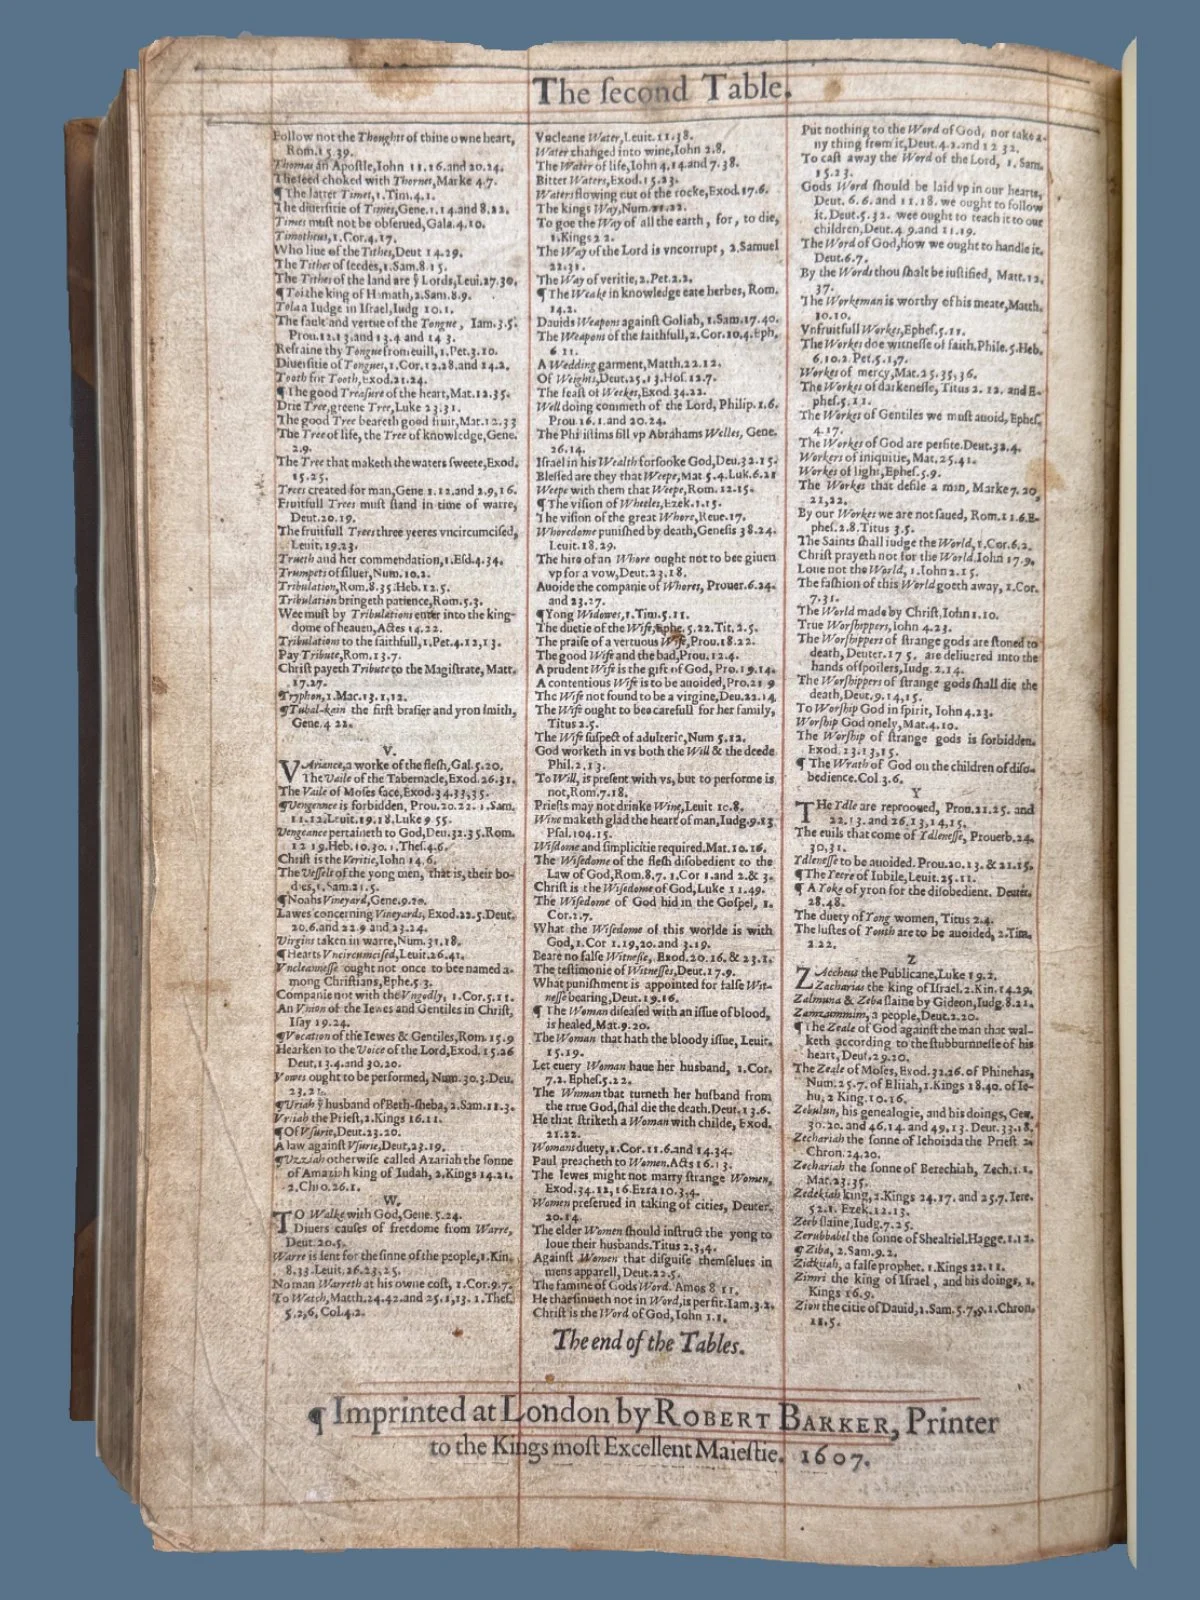 The ſecond Table.
Follow not the Thoughts of thine owne heart,
Rom.15.39.
Thomas an Apoſtle, Iohn 11.16.and 20.24.
The ſeed choked with Thornes, Marke 4.7.
¶ The latter Times, 1.Tim.4.1.
The diuerſitie of Times, Gene.1.14.and 8.22.
Times muſt not be obſerued, Gala.4.10.
Timotheus, 1.Cor.4.17.
Who liue of the Tithes, Deut 14.29.
The Tithes of ſeedes, 1.Sam.8.15.
The Tithes of the land are ẏ Lords, Leui.27.30.
¶ Toi the king of Hamath, 2.Sam.8.9.
Tola a Iudge in Iſrael, Iudg 10.1.
The fault and vertue of the Tongue, Iam.3.5.
Prou.12.13.and 13.4 and 14 3.
Refraine thy Tongue from euill, 1.Pet.3.10.
Diuerſitie of Tongues, 1.Cor.12.28.and 14.2.
Tooth for Tooth, Exod.21.24.
¶ The good Treaſure of the heart, Mat.12.35.
Drie Tree, greene Tree, Luke 23.31.
The good Tree beareth good fruit, Mat.12.33
The Tree of life, the Tree of knowledge, Gene.
2.9.
The Tree that maketh the waters ſweete, Exod.
15.25.
Trees created for man, Gene 1.12.and 2.9,16.
Fruitfull Trees muſt ſtand in time of warre,
Deut.20.19.
The fruitfull Trees three yeeres vncircumciſed,
Leuit.19.23.
Trueth and her commendation, 1.Eſd.4.34.
Trumpets of ſiluer, Num.10.2.
Tribulation, Rom.8.35.Heb.12.5.
Tribulation bringeth patience, Rom.5.3.
Wee muſt by Tribulations enter into the king-
dome of heauen, Actes 14.22.
Tribulations to the faithfull, 1.Pet.4.12,13.
Pay Tribute, Rom.13.7.
Chriſt payeth Tribute to the Magiſtrate, Matt.
17.27.
Tryphon, 1.Mac.13.1,12.
¶ Tubal-kain the firſt braſier and yron ſmith,
Gene.4 22.
V.
VAriance, a worke of the fleſh, Gal.5.20.
The Vaile of the Tabernacle, Exod.26.31.
The Vaile of Moſes face, Exod.34.33,35.
¶ Vengeance is forbidden, Prou.20.22. 1.Sam.
11.12.Leuit.19.18, Luke 9 55.
Vengeance pertaineth to God, Deu.32.35.Rom.
12 19.Heb.10.30.1.Theſ.4.6.
Chriſt is the Veritie, Iohn 14.6.
The Veſſels of the yong men, that is, their bo-
dies, 1.Sam.21.5.
¶ Noahs Vineyard, Gene.9.20.
Lawes concerning Vineyards, Exod.22.5.Deut.
20.6.and 22.9 and 23.24.
Virgins taken in warre, Num.31.18.
¶ Hearts Vncircumciſed, Leuit.26.41.
Vncleanneſſe ought not once to bee named a-
mong Chriſtians, Ephe.5.3.
Companie not with the Vngodly, 1.Cor.5.11.
An Vnion of the Iewes and Gentiles in Chriſt,
Iſay 19.24.
¶ Vocation of the Iewes & Gentiles, Rom.15.9
Hearken to the Voice of the Lord, Exod.15.26
Deut.13.4.and 30.20.
Vowes ought to be performed, Num.30.3.Deu.
23.21.
¶ Vriah ẏ husband of Beth-ſheba, 2.Sam.11.3.
Vriiah the Prieſt, 2.Kings 16.11.
¶ Of Vſurie, Deut.23.20.
A law againſt Vſurie, Deut,23.19.
¶ Vzziah otherwiſe called Azariah the ſonne
of Amaziah king of Iudah, 2.Kings 14.21.
2.Chro.26.1.
W.
TO Walke with God, Gene.5.24.
Diuers cauſes of freedome from Warre,
Deut.20.5.
Warre is ſent for the ſinne of the people, 1.Kin.
8.33.Leuit.26.23,25.
No man Warreth at his owne coſt, 1.Cor.9.7.
To Watch, Matth.24.42.and 25.1,13. 1.Theſ.
5.2,6, Col.4.2.
Vncleane Water, Leuit.11.38.
Water changed into wine, Iohn 2.8.
The Water of life, Iohn 4.14.and 7.38.
Bitter Waters, Exod.15.23.
Waters flowing out of the rocke, Exod.17.6.
The kings Way, Num.21.22.
To goe the Way of all the earth, for, to die,
1.Kings 2 2.
The Way of the Lord is vncorrupt, 2.Samuel
22.31.
The Way of veritie, 2.Pet.2.2.
¶ The Weake in knowledge eate herbes, Rom.
14.2.
Dauids Weapons againſt Goliah, 1.Sam.17.40.
The Weapons of the faithfull, 2.Cor.10.4.Eph.
6 11.
A Wedding garment, Matth.22.12.
Of Weights, Deut.25.13.Hoſ.12.7.
The feaſt of Weekes, Exod 34.22.
Well doing commeth of the Lord, Philip.1.6.
Prou 16.1.and 20.24.
The Philiſtims fill vp Abrahams Welles, Gene.
26.14.
Iſrael in his Wealth forſooke God, Deu.32.15.
Bleſſed are they that Weepe, Mat 5.4.Luk.6.21
Weepe with them that Weepe, Rom.12.15.
¶ The viſion of Wheeles, Ezek.1.15.
The viſion of the great Whore, Reue.17.
Whoredome puniſhed by death, Geneſis 38.24.
Leuit.18.29.
The hire of an Whore ought not to bee giuen
vp for a vow, Deut.23.18.
Auoide the companie of Whores, Prouer.6.24.
and 23.27.
¶ Yong Widowes, 1.Tim.5.11.
The duetie of the Wife, Ephe.5.22.Tit.2.5.
The praiſe of a vertuous Wife, Prou.18.22.
The good Wife and the bad, Prou.12.4.
A prudent Wife is the gift of God, Pro.19.14.
A contentious Wife is to be auoided, Pro.21 9
The Wife not found to be a virgine, Deu.22.14
The Wife ought to bee carefull for her family,
Titus 2.5.
The Wife ſuſpect of adulterie, Num 5.12.
God worketh in vs both the Will & the deede
Phil.2.13.
To Will, is preſent with vs, but to performe is
not, Rom.7.18.
Prieſts may not drinke Wine, Leuit 10.8.
Wine maketh glad the heart of man, Iudg.9.13
Pſal.104.15.
Wiſdome and ſimplicitie required.Mat.10.16.
The Wiſedome of the fleſh diſobedient to the
Law of God, Rom.8.7. 1.Cor 1.and 2.& 3.
Chriſt is the Wiſedome of God, Luke 11.49.
The Wiſedome of God hid in the Goſpel, 1.
Cor.2.7.
What the Wiſedome of this worlde is with
God, 1.Cor 1.19,20.and 3.19.
Beare no falſe Witneſſe, Exod.20.16.& 23.1.
The teſtimonie of Witneſſes, Deut.17.9.
What puniſhment is appointed for falſe Wit-
neſſe bearing, Deut.19.16.
¶ The Woman diſeaſed with an iſſue of blood,
is healed, Mat.9.20.
The Woman that hath the bloody iſſue, Leuit.
15.19.
Let euery Woman haue her husband, 1.Cor.
7.2.Epheſ.5.22.
The Woman that turneth her husband from
the true God, ſhal die the death.Deut.13.6.
He that ſtriketh a Woman with childe, Exod.
21.22.
Womans duety, 1.Cor.11.6.and 14.34.
Paul preacheth to Women.Acts 16.13.
The Iewes might not marry ſtrange Women,
Exod.34.12,16.Ezra 10.3,4.
Women preſerued in taking of cities, Deuter.
20.14.
The elder Women ſhould inſtruct the yong to
loue their husbands.Titus 2.3,4.
Againſt Women that diſguiſe themſelues in
mens apparell, Deut.22.5.
The famine of Gods Word. Amos 8 11.
He that ſinneth not in Word, is perfit.Iam.3.2.
Chriſt is the Word of God, Iohn 1.1.
Put nothing to the Word of God, nor take a-
ny thing from it, Deut.4.2.and 12 32.
To caſt away the Word of the Lord, 1.Sam.
15.23.
Gods Word ſhould be laid vp in our hearts,
Deut.6.6.and 11.18. we ought to follow
it.Deut.5.32. wee ought to teach it to our
children, Deut.4 9.and 11.19.
The Word of God, how we ought to handle it.
Deut.6.7.
By the Words thou ſhalt be iuſtified, Matt.12.
37.
The Workeman is worthy of his meate, Matth.
10.10.
Vnfruitfull Workes, Epheſ.5.11.
The Workes doe witneſſe of faith.Phile.5.Heb.
6.10.2.Pet.5.1,7.
Workes of mercy, Mat.25.35,36.
The Workes of darkeneſſe, Titus 2.12. and E-
pheſ.5.11.
The Workes of Gentiles we muſt auoid, Epheſ.
4.17.
The Workes of God are perfite.Deut.32.4.
Workers of iniquitie, Mat.25.41.
Workes of light, Epheſ.5.9.
The Workes that defile a man, Marke 7.20,
21,22.
By our Workes we are not ſaued, Rom.11.6.E-
pheſ.2.8.Titus 3.5.
The Saints ſhall iudge the World, 1.Cor.6.2.
Chriſt prayeth not for the World.Iohn 17.9.
Loue not the World, 1.Iohn 2.15.
The faſhion of this World goeth away, 1.Cor.
7.31.
The World made by Chriſt, Iohn 1.10.
True Worſhippers, Iohn 4.23.
The Worſhippers of ſtrange gods are ſtoned to
death, Deuter.17 5. are deliuered into the
hands of ſpoilers, Iudg.2.14.
The Worſhippers of ſtrange gods ſhall die the
death, Deut.9.14,15.
To Worſhip God in ſpirit, Iohn 4.23.
Worſhip God onely, Mat.4.10.
The Worſhip of ſtrange gods is forbidden.
Exod.23.13,15.
¶ The Wrath of God on the children of diſo-
bedience.Col.3.6.
Y
THe Ydle are reprooued, Prou.21.25. and
22.13. and 26.13,14,15.
The euils that come of Ydleneſſe, Prouerb.24.
30,31.
Ydleneſſe to be auoided. Prou.20.13. & 21.15.
¶ The Yeere of Iubile, Leuit.25.11.
¶ A Yoke of yron for the diſobedient. Deuter.
28.48.
The duety of Yong women, Titus 2.4.
The luſtes of Youth are to be auoided, 2.Tim.
2.22.
Z
ZAccheus the Publicane, Luke 19.2.
Zacharias the king of Iſrael.2.Kin.14.29.
Zalmuna & Zeba ſlaine by Gideon, Iudg.8.21.
Zamzummim, a people, Deut.2.20.
¶ The Zeale of God againſt the man that wal-
keth according to the ſtubburnneſſe of his
heart, Deut.29.20.
The Zeale of Moſes, Exod.32.26. of Phinehas,
Num.25.7. of Eliiah, 1.Kings 18.40. of Ie-
hu, 2 King.10.16.
Zebulun, his genealogie, and his doings, Gen.
30.20. and 46.14. and 49,13. Deut.33.18.
Zechariah the ſonne of Iehoiada the Prieſt 2.
Chron.24.20.
Zechariah the ſonne of Berechiah, Zech.1.1.
Mat.23.35.
Zedekiah king, 2.Kings 24.17. and 25.7. Iere.
52.1. Ezek.12.13.
Zeeb ſlaine, Iudg.7.25.
Zerubbabel the ſonne of Shealtiel.Hagge.1.12.
¶ Ziba, 2.Sam.9.2.
Zidkiiah, a falſe prophet. 1.Kings 22.11.
Zimri the king of Iſrael, and his doings, 1.
Kings 16.9.
Zion the citie of Dauid, 1.Sam.5.7,9.1.Chron.
11.5.
The end of the Tables.
¶ Imprinted at London by ROBERT BARKER, Printer
to the Kings moſt Excellent Maieſtie. 1607.